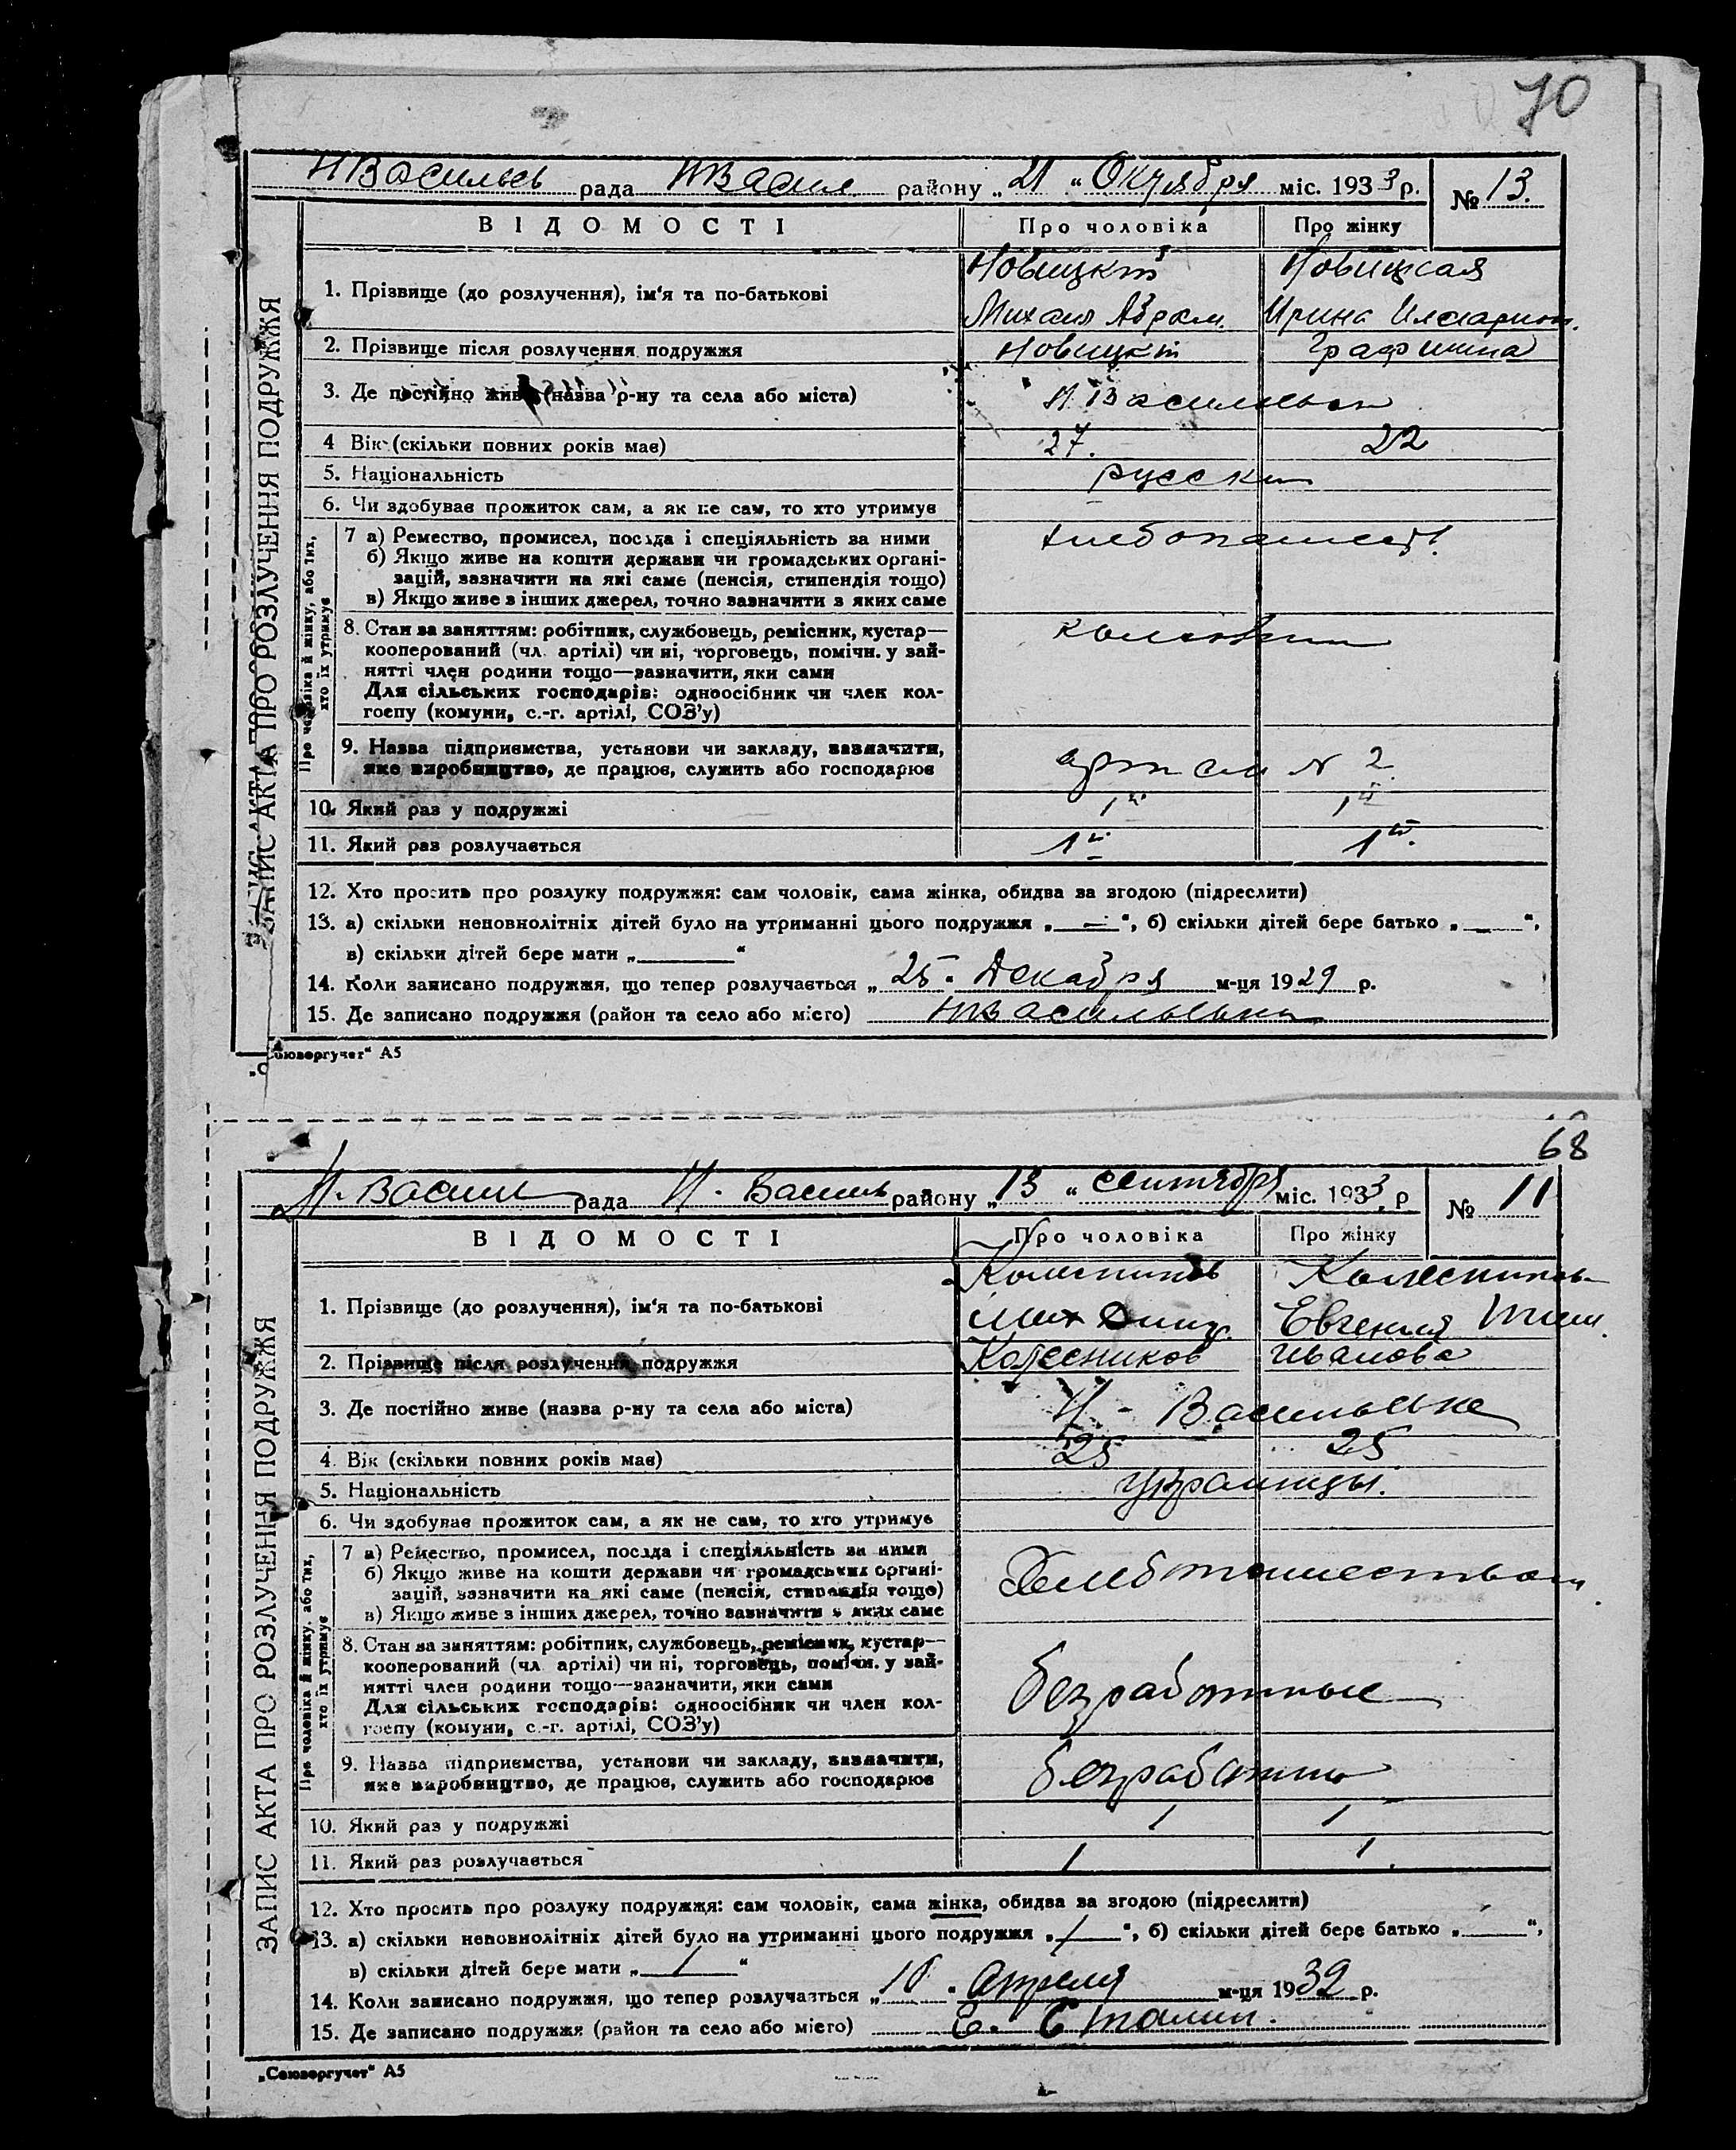 70
НВасильев рада НВасил району „21“ Октября міс. 1933 р. № 13.
ВІДОМОСТІ Про чоловіка Про жінку
ЗАПИС АКТА ПРО РОЗЛУЧЕННЯ ПОДРУЖЖЯ
1. Прізвище (до розлучення), ім'я та по-батькові Новицкий Новицкая
Михаил Абрам. Ирина Иларион.
2. Прізвище після розлучення подружжя Новицкий Графинина
3. Де постійно живе (назва р-ну та села або міста) Н Васильевка
4 Вік (скільки повних років має) 27. 22
5. Національність русские
6. Чи здобуває прожиток сам, а як не сам, то хто утримує
Про чоловіка й жінку, або тих, хто їх утримує
7 а) Ремество, промисел, посада і спеціяльність за ними хлебопашест.
б) Якщо живе на кошти держави чи громадських органі-
зацій, зазначити на які саме (пенсія, стипендія тощо)
в) Якщо живе з інших джерел, точно зазначити з яких саме
8. Стан за заняттям: робітник, службовець, ремісник, кустар— колхозник
кооперований (чл. артілі) чи ні, торговець, помічн. у зай-
нятті член родини тощо—зазначити, яки сами
Для сільських господарів: одноосібник чи член кол-
госпу (комуни, с.-г. артілі, СОЗ'у)
9. Назва підприємства, установи чи закладу, зазначити, артели № 2.
яке виробництво, де працює, служить або господарює
10. Який раз у подружжі 1й 1й
11. Який раз розлучається 1й 1й.
12. Хто просить про розлуку подружжя: сам чоловік, сама жінка, обидва за згодою (підреслити)
13. а) скільки неповнолітніх дітей було на утриманні цього подружжя „—“, б) скільки дітей бере батько „—“,
в) скільки дітей бере мати „ “
14. Коли записано подружжя, що тепер розлучається „25“ Декабря м-ця 1929 р.
15. Де записано подружжя (район та село або місто) НВасильевка
„Союзоргучет“ А5
68
Н. Васил рада Н. Василь району „13“ сентября міс. 1933 р № 11
ВІДОМОСТІ Про чоловіка Про жінку
ЗАПИС АКТА ПРО РОЗЛУЧЕННЯ ПОДРУЖЖЯ
1. Прізвище (до розлучення), ім'я та по-батькові Колесников Колесникова
Мих Дмитр. Евгения Тим.
2. Прізвище після розлучення подружжя Колесников Иванова
3. Де постійно живе (назва р-ну та села або міста) Н - Васильевке
4. Вік (скільки повних років має) 25 25
5. Національність украинцы.
6. Чи здобуває прожиток сам, а як не сам, то хто утримує
Про чоловіка й жінку, або тих, хто їх утримує
7 а) Ремество, промисел, посада і спеціяльність за ними Хлебопашеством
б) Якщо живе на кошти держави чи громадських органі-
зацій, зазначити на які саме (пенсія, стипендія тощо)
в) Якщо живе з інших джерел, точно зазначити з яких саме
8. Стан за заняттям: робітник, службовець, ремісник, кустар—
кооперований (чл. артілі) чи ні, торговець, помічн. у зай- безработные
нятті член родини тощо—зазначити, яки сами
Для сільських господарів: одноосібник чи член кол-
госпу (комуни, с.-г. артілі, СОЗ'у)
9. Назва підприємства, установи чи закладу, зазначити, безработны
яке виробництво, де працює, служить або господарює
10. Який раз у подружжі 1 1
11. Який раз розлучається 1 1.
12. Хто просить про розлуку подружжя: сам чоловік, сама жінка, обидва за згодою (підреслити)
13. а) скільки неповнолітніх дітей було на утриманні цього подружжя „1“, б) скільки дітей бере батько „ “,
в) скільки дітей бере мати „1“
14. Коли записано подружжя, що тепер розлучається „10“ Апреля м-ця 1932 р.
15. Де записано подружжя (район та село або місто) с. Сталин.
„Союзоргучет“ А5